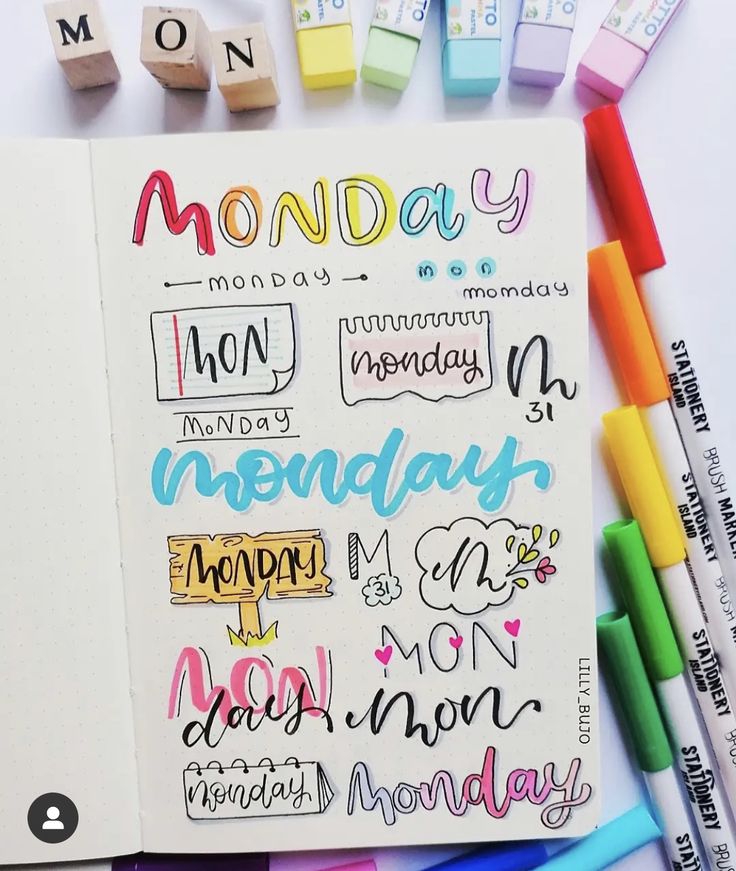 M O N
PASTEL
PASTEL
PASTEL
PASTEL
MONDAY
monday
mon
momday
MON
monday
m
31
MONDAY
monday
MONDAY
M
31
m
MON
days
MON
mon
monday
Monday
LILLY_BUJO
STATIONERY
ISLAND
BRUSH MARKER
STATIONERY
ISLAND
BRUSH MARKER
STATIONERY
ISLAND
BRUSH
STATIONERY
ISLAND
BRUSH